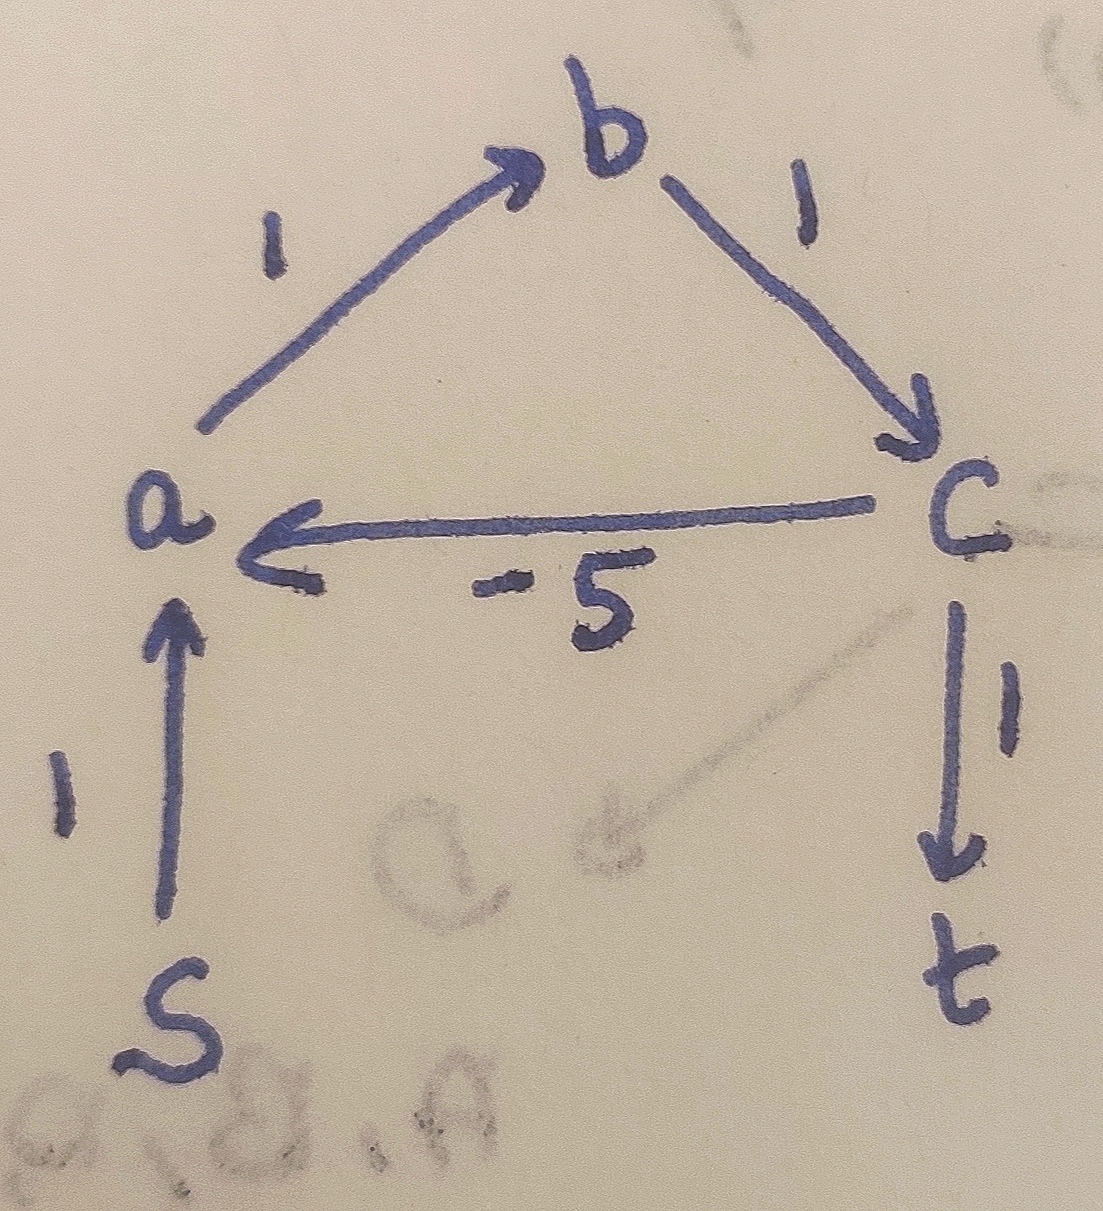 b
1 1
a C
-5
1 1
S t